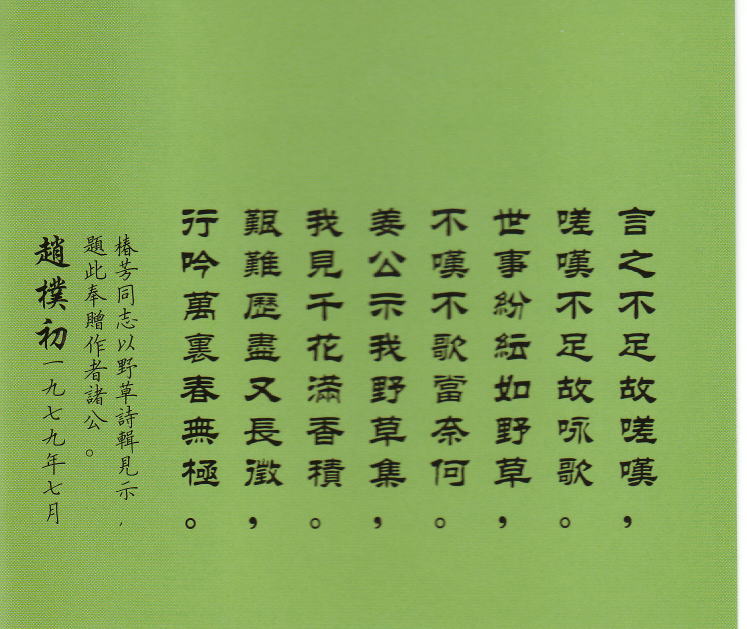 言之不足故嗟嘆，
嗟嘆不足故咏歌。
世事紛紜如野草，
不嘆不歌當奈何。
姜公示我野草集，
我見千花滿香積。
艱難歷盡又長徵，
行吟萬裏春無極。
椿芳同志以野草詩輯見示，
題此奉贈作者諸公。
趙樸初一九七九年七月